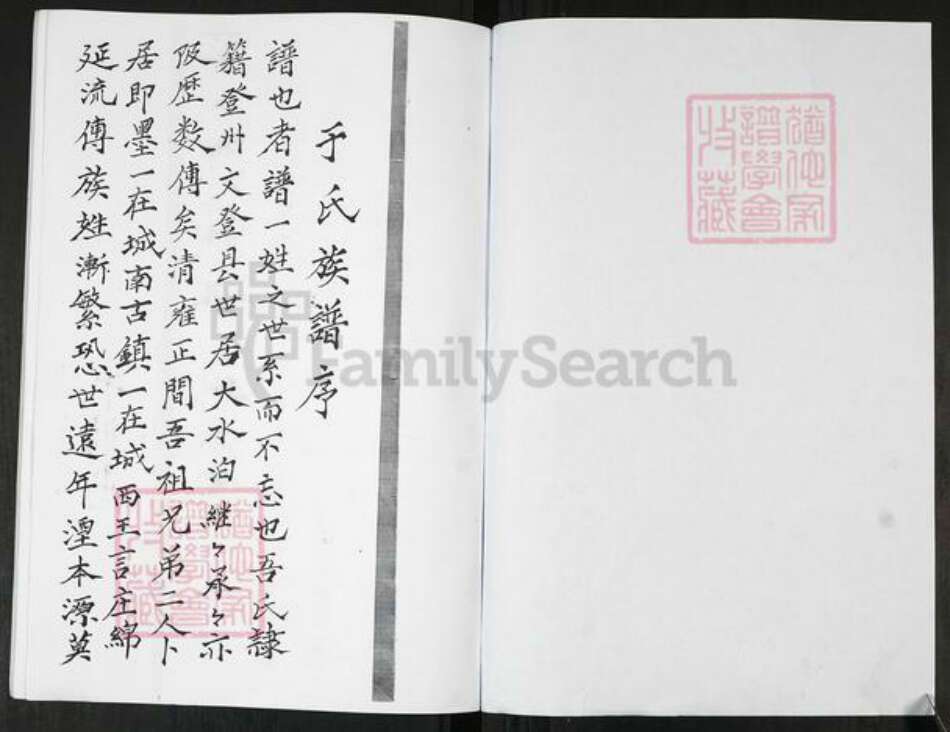 于氏族譜序
譜也者譜一姓之世系而不忘也吾氏隷
籍登州文登县世居大水泊継々承々亦
伋歴数傳矣清雍正間吾祖兄弟二人卜
居即墨一在城南古鎮一在城西王言庄綿
延流傳族姓漸繁恐世遠年湮本源莫
FamilySearch